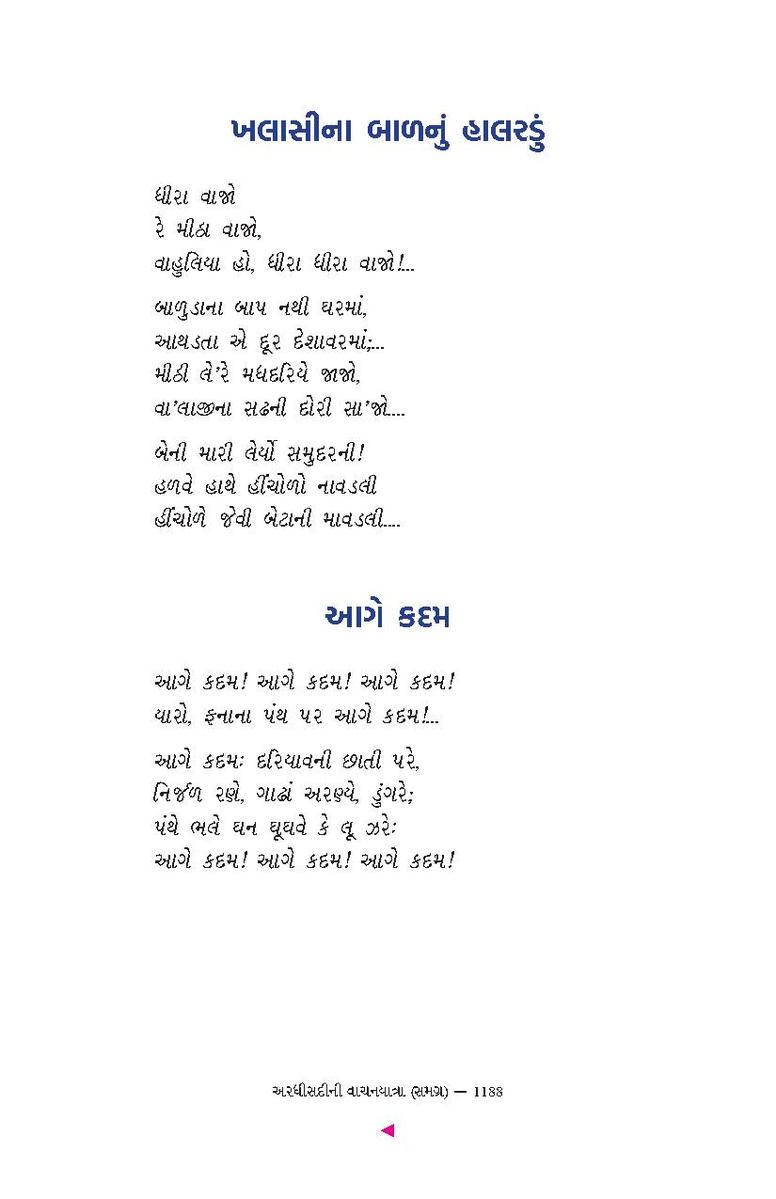 ખલાસીના બાળનું હાલરડું
ધીરા વાજો
રે મીઠા વાજો,
વાહુલિયા હો, ધીરા ધીરા વાજો!...
બાળુડાના બાપ નથી ઘરમાં,
આથડતા એ દૂર દેશાવરમાં;...
મીઠી લે’રે મધદરિયે જાજો,
વા’લાજીના સઢની દોરી સા’જો....
બેની મારી લેર્યો સમુદરની!
હળવે હાથે હીંચોળો નાવડલી
હીંચોળે જેવી બેટાની માવડલી....
આગે કદમ
આગે કદમ! આગે કદમ! આગે કદમ!
યારો, ફનાના પંથ પર આગે કદમ!...
આગે કદમઃ દરિયાવની છાતી પરે,
નિર્જળ રણે, ગાઢાં અરણ્યે, ડુંગરે;
પંથે ભલે ઘન ઘૂઘવે કે લૂ ઝરેઃ
આગે કદમ! આગે કદમ! આગે કદમ!
અરધીસદીની વાચનયાત્રા (સમગ્ર) — 1188